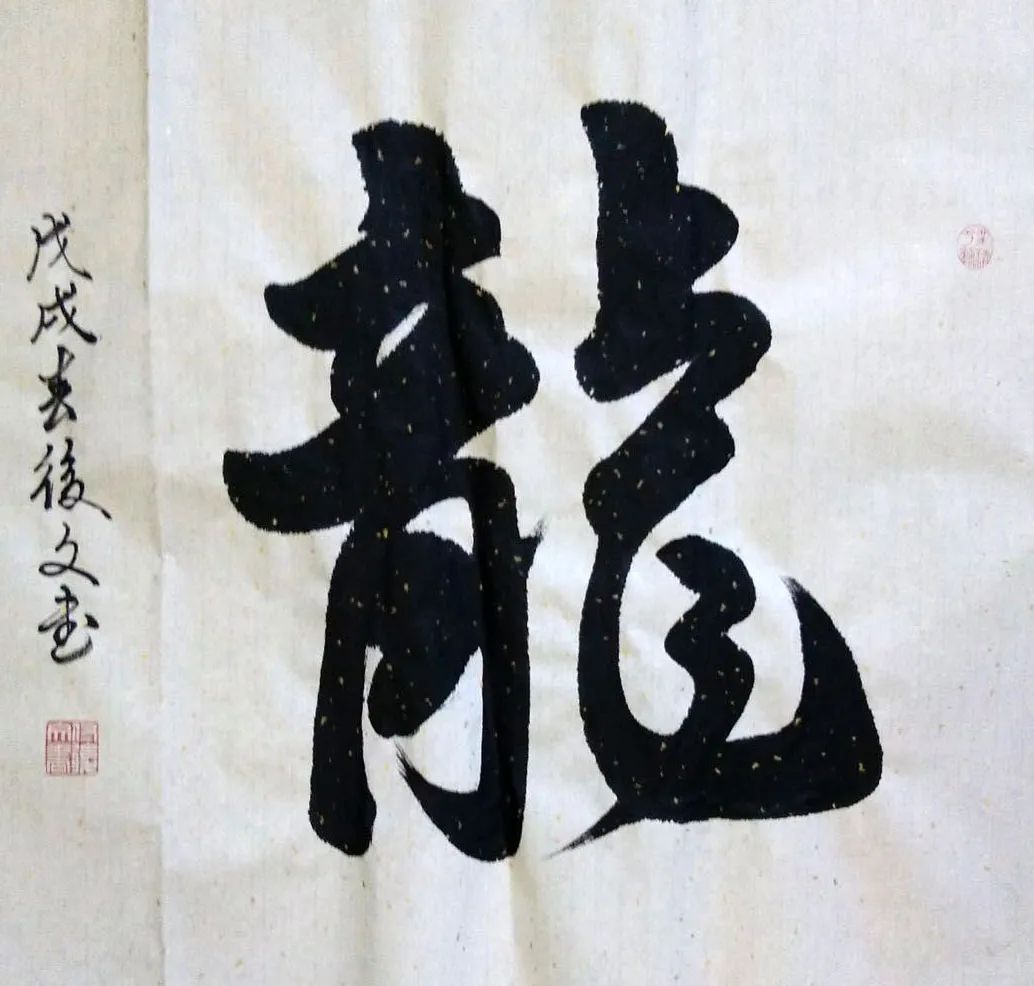 龍
戊戌春後文书